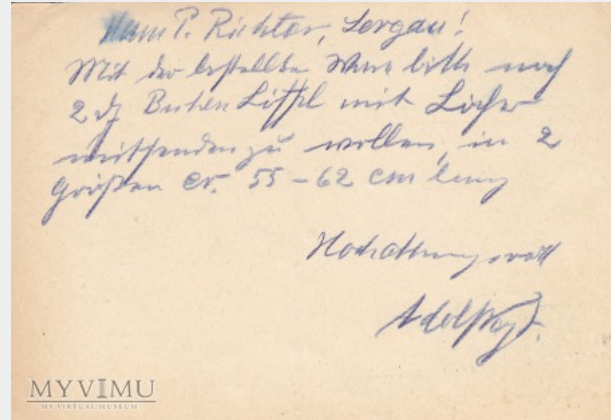 Herrn P. Richter, Sorgau!
Mit der bestellten Ware bitte noch
2 Dz Buchen Löffel mit Löcher
mitsenden zu wollen, in 2
Größen cr. 55-62 cm lang
Hochachtungsvoll
MYVIMU
MY VIRTUAL MUSEUM